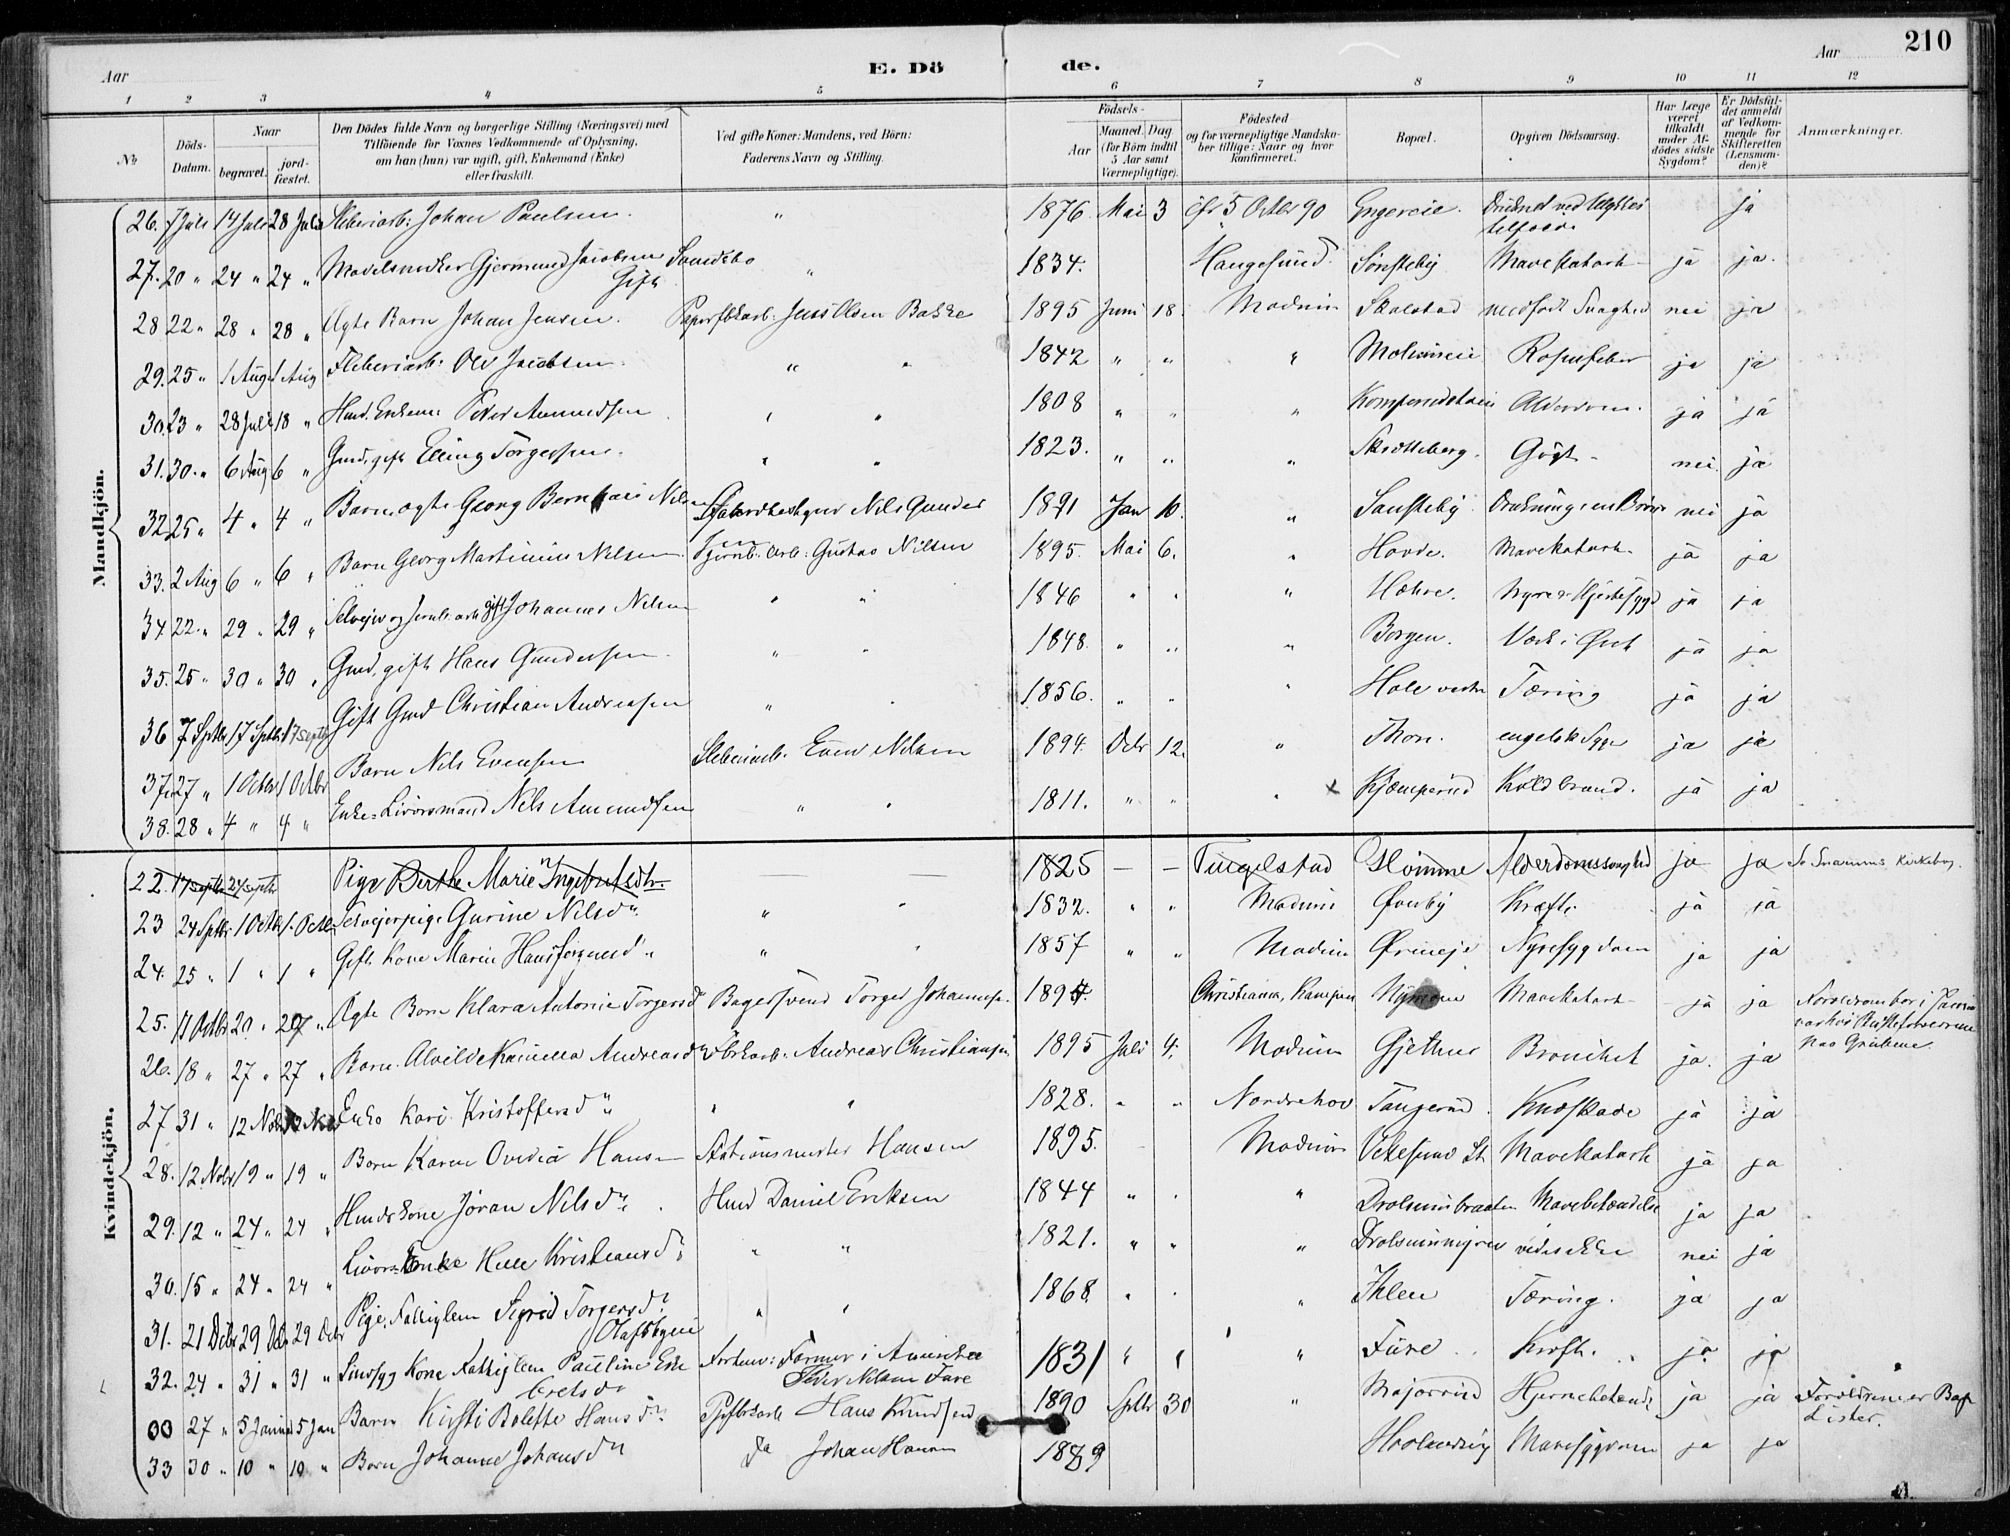 210
Aar
E. Dö de.
Aar
1 2 3 4 5 6 7 8 9 10 11 12
№
Döds-Datum.
Naar
begravet.
jord-fæstet.
Den Dödes fulde Navn og borgerlige Stilling (Næringsvei) med
Tilföiende for Voxnes Vedkommende af Oplysning,
om han (hun) var ugift, gift, Enkemand (Enke)
eller fraskilt.
Ved gifte Koner: Mandens, ved Börn:
Faderens Navn og Stilling.
Födsels-
Aar
Maaned. Dag
(for Börn indtil
5 Aar samt
Værnepligtige).
Födested
og for værnepligtige Mandska-
ber tillige: Naar og hvor
konfirmeret.
Bopæl.
Opgiven Dödsaarsag.
Har Læge
været
tilkaldt
under Af-
dödes sidste
Sygdom?
Er Dödsfal-
det anmeldt
af Vedkom-
mende for
Skifteretten
(Lensman-
den)?
Anmærkninger.
Mandkjön.
26. 7 Juli 14 Juli 28 Juli Sliberiarb: Johan Paulsen. " 1876 Mai 3 cfr 5 Octbr 90 Engereie. Druknet ved Ulykkes ja
tilfælde
27. 20 " 24 " 24 " Modelsnedker Gjermund Jacobsen Sandsbo " 1834. Haugesund. Sönsteby Mavekatarh ja ja.
Gift
28 22 " 28 " 28 " Ægte Barn Johan Jensen. Papirfbkarb: Jens Olsen Bakke 1895 Juni 18. Modum Skalstad medfödt Svaghed nei ja
29. 25 " 1 Aug 1 Aug Sliberiarb. Ole Jacobsen. " " 1842 " " " Rosenfeber ja ja
30. 23 " 28 Juli 18 " Husd. Enkem. Peder Amundsen " " 1808 " " " Alderdom. ja ja
31. 30. " 6 Aug 6 " Gmd, gift Elling Torgersen. " " 1823. " " " Skrötteberg. Gigt - nei ja
32 25 " 4 " 4 " Barn, ægte Georg Bernhard Nilsen Nils Gunder 1891 Jan 10. " Sønsteby Drukning i en Brönd nei ja
sen
33. 2 Aug 6 " 6 " Barn Georg Martinius Nilsen. Jernb. Arb: Gustav Nilsen 1895. Mai 6. " Hovde. Mavekatarh. ja ja
34 22. " 29 " 29 " Selvejer og Jernb. arb gift Johannes Nilsen " " 1846 " " " Hæhre. Nyre & Hjertesygd ja ja
35. 25 " 30 " 30 " Gmd, gift Hans Gundersen. " " 1848. " " " Borgen. Værk i Øret ja ja
36 7 Sptbr 17 Sptbr 17 septbr Gift Gmd Christian Andreasen " " 1856. " " " Hole vestre Tæring ja ja
37. 27 " 1 Octbr 1 Octbr Barn Nils Evensen Sliberiarb. Even Nilsen 1894. Octbr 12. " Thon. engelsk Syge ja ja
38. 28 " 4 " 4 " Enke-Livörsmand Nils Amundsen " " 1811. " " " x Kjæmperud Koldbrand. ja ja
Kvindekjön.
22. 17 septbr 24 septbr Pige Berthe Marie Ingebretsdtr. — — 1825 — — Tingelstad Glömme Alderdomssvaghed ja ja Se Snarums Kirkebog.
23 24 Sptbr 1 Octbr 1. Octbr Selvejerpige Gurine Nilsdr. " " 1832. " " Modum Øverby Kræft. ja ja
24. 25 " 1 " 1 " Gift Kone Maren Hansjörgensdr. " " 1857 " " Modum Ørineje Nyresygdom ja ja
25. 11 Octbr 20 " 20 " Ægte Barn Klara Antonie Torgersdr Bagersvend Torger Johannesen. 1894. Christiania, Kampen Nymoen Mavekatarh - ja ja Forældrene bor i
26. 18 " 27 " 27 " Barn. Alvilde Kamilla Andreasdr Andreas Christiansen 1895 Juli 4. Modum Gjethus Bronchit ja. ja paa Grüberne.
27 31 " 12 Novbr 12 Novbr Enke Kari Kristoffersdr. " " 1828. " " Norderhov Tangerud. Knæskade ja ja
28. 12 Novbr 19 " 19 " Barn Karen Ovidia Hansen Stationsmester Hansen 1895. Modum Vikesund St. Mavekatarh ja ja
29. 12 " 24 " 24 " Husmds Kone Jöran Nilsdr. Husmd Daniel Eriksen 1844 " " " Drolsumbraaten Mavebetændelse ja ja
30. 15 " 24 " 24 " Livörs Enke Helle Kristiansdr. " " 1821. " " " vides ikke nei ja
31. 21 Decbr 29 Decbr 29 Decbr Pige, Fattiglem Sigrid Torgersdr. " " 1868. " " " Ihlen Tæring. ja ja
Olafsbyeie
32. 24 " 31 " 31 " Sindsyg Kone Fattiglem Pauline Eng Forhenv: Farmer i Amerika 1831 " " " Fure. Kræft. ja ja
bretsdr Peder Nilsen Fure
00 27 " 5 Januar 5 Jan Barn Kirsti Bolette Hansdr. Hans Knudsen 1890 Sptbr 30 " Majorrud Hjernebetænd. ja ja Forældrene er Bap
tister.
33 30 " 10 " 10 " Barn Johanne Johansdr do Johan Hansen 1889 Mavesygdom ja ja